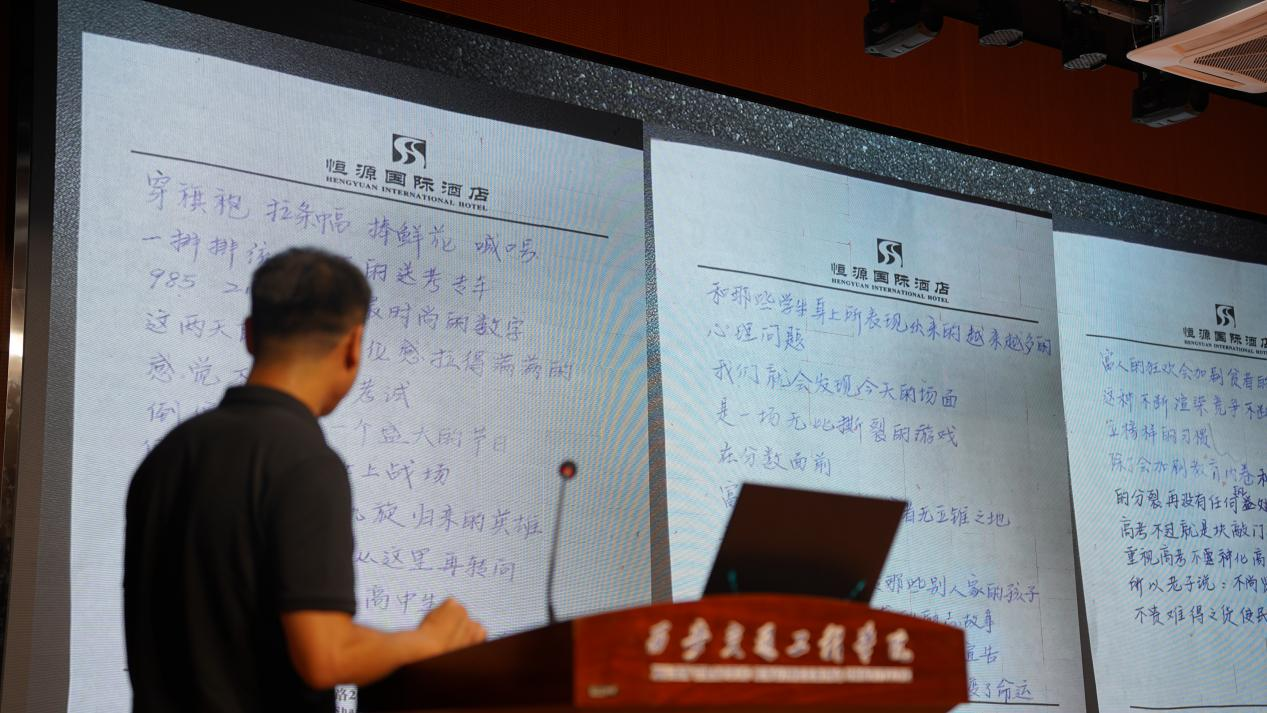 恒源国际酒店
HENGYUAN INTERNATIONAL HOTEL
穿旗袍 拉条幅 捧鲜花 喊口号
一排排
的送考专车
985
这两天
时尚的数字
感觉
位感 拉得满满的
考试
一个盛大的节日
上战场
旋归来的英雄
从这里再转向
高中生
恒源国际酒店
HENGYUAN INTERNATIONAL HOTEL
和那些学生身上所表现出来的越来越多的
心理问题
我们就会发现今天的场面
是一场无比撕裂的游戏
在分数面前
富
者无立锥之地
那些别人家的孩子
故事
宣告
了命运
恒源国际酒
HENGYUAN INTERNATIONAL HOT
富人的狂欢会加剧贫者的
这种不断渲染竞争不断
立榜样的习惯
除了会加剧教育内卷和
的分裂再没有任何益处
高考不过就是块敲门
重视高考不要神化高
所以老子说：不尚贤
不贵难得之货使民
西安交通工程学院